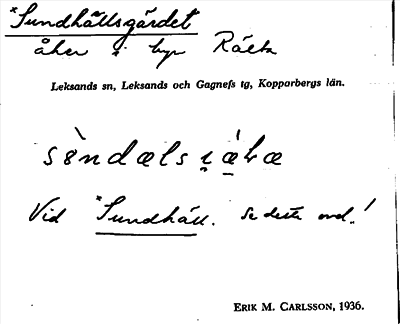 *Sundhällsgärdet
åker i byn Rälta
Leksands sn, Leksands och Gagnefs tg, Kopparbergs län.
sòndælsɩ́æ̀ka
Vid *Sundhäll. Se detta ord!
ERIK M. CARLSSON, 1936.